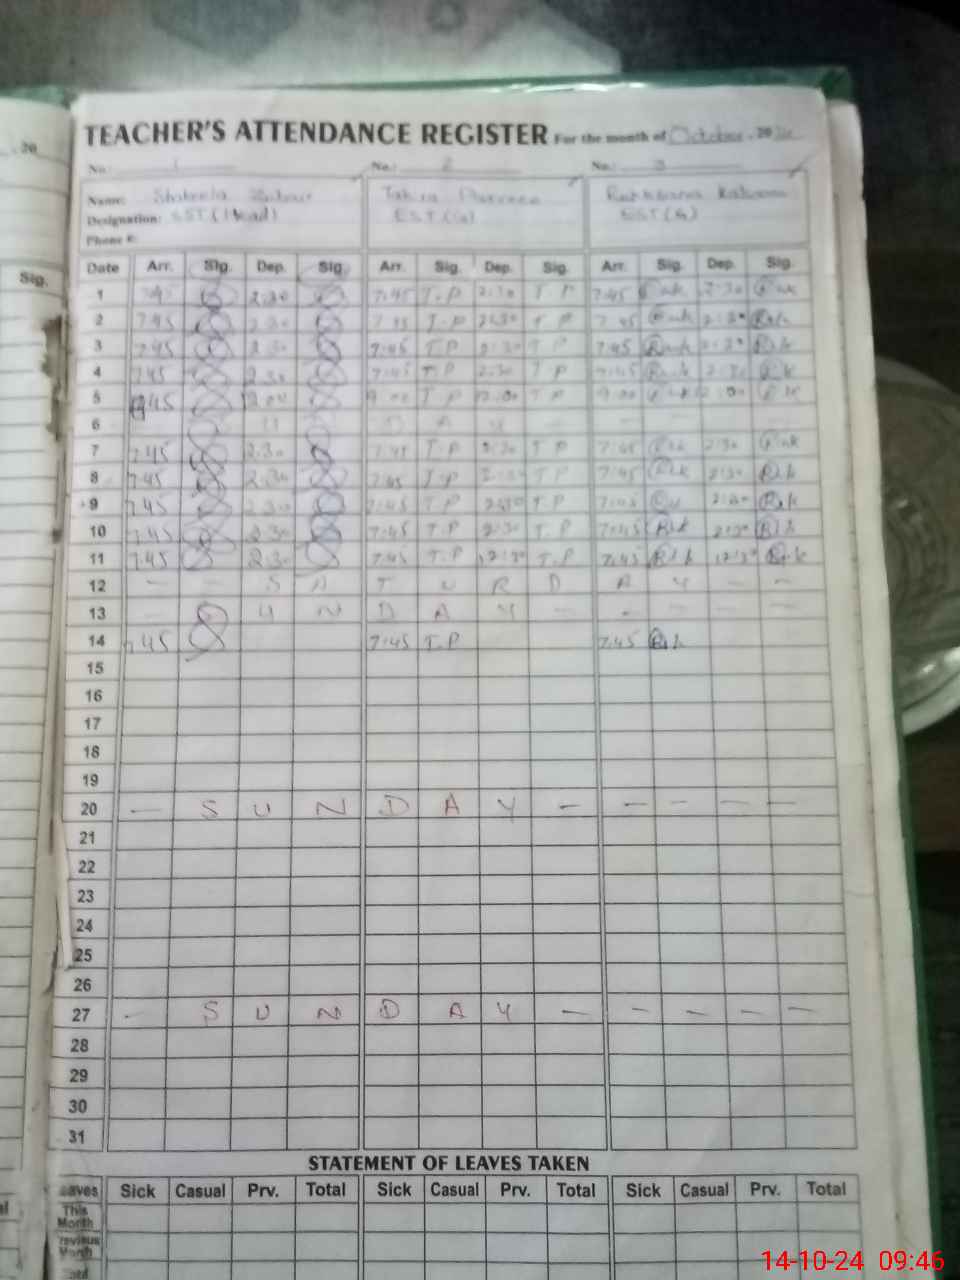 TEACHER'S ATTENDANCE REGISTER For the month of October 20
No. 1 No. 2 No. 3
Name: Shakeela Tahira Parveen
Designation: SST (Head) EST (G) EST (G)
Phone #:
Date Arr. Sig. Dep. Sig. Arr. Sig. Dep. Sig. Arr. Sig. Dep. Sig.
1 7:45 2:30 7:45 T.P 2:30 T.P 7:45 2:30
2 7:45 2:30 7:45 T.P 2:30 T.P 7:45 2:30
3 7:45 2:30 7:45 T.P 2:30 T.P 7:45 2:30
4 7:45 2:30 7:45 T.P 2:30 T.P 7:45 2:30
5 12:00 9:00 T.P 12:00 T.P 9:00 12:00
6 U D A Y
7 7:45 2:30 7:45 T.P 2:30 T.P 7:45 2:30
8 7:45 2:30 7:45 T.P 2:30 T.P 7:45 2:30
9 7:45 2:30 7:45 T.P 2:30 T.P 7:45 2:30
10 7:45 2:30 7:45 T.P 2:30 T.P 7:45 2:30
11 7:45 2:30 7:45 T.P 12:30 T.P 7:45 12:30
12 - - S A T U R D A Y - -
13 - U N D A Y - - - - -
14 7:45 7:45 T.P 7:45
15
16
17
18
19
20 - S U N D A Y - - - - -
21
22
23
24
25
26
27 - S U N D A Y - - - - -
28
29
30
31
STATEMENT OF LEAVES TAKEN
Leaves Sick Casual Prv. Total Sick Casual Prv. Total Sick Casual Prv. Total
This Month
Previous Month
Total
20
Sig.
14-10-24 09:46